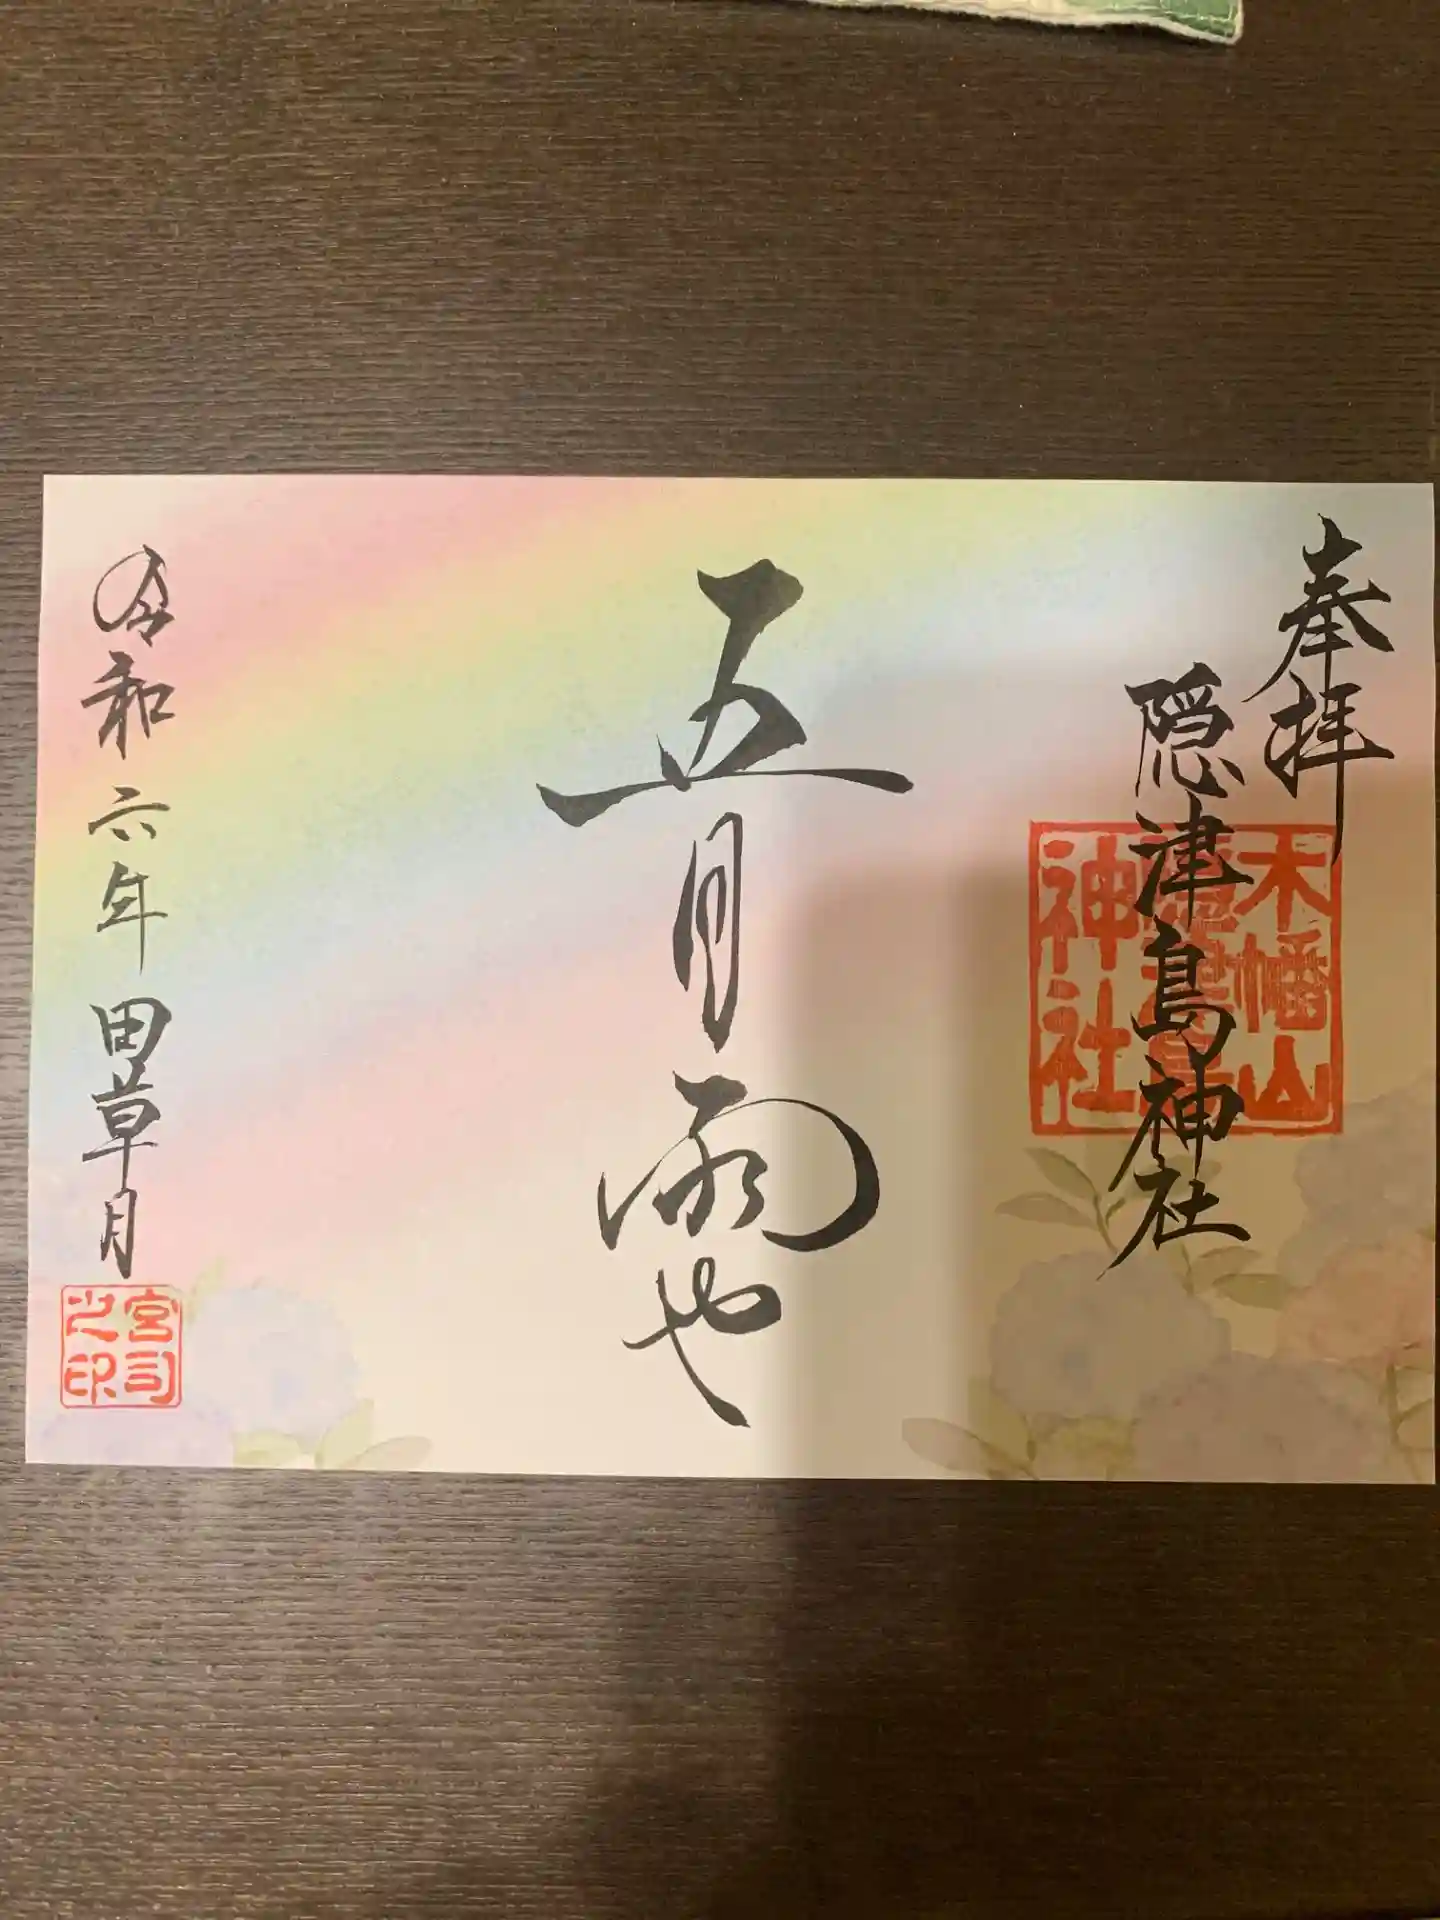 奉拝
隠津島神社
木幡山
隠津島
神社
五月雨や
令和六年田草月
宮司
之印